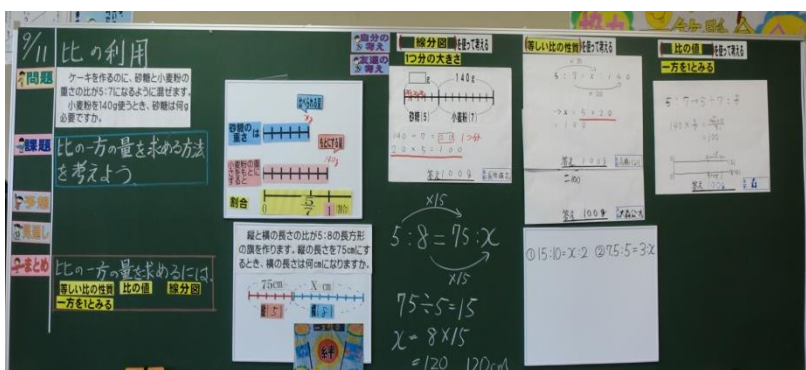 9/11 比の利用
問題
ケーキを作るのに、砂糖と小麦粉の
重さの比が5:7になるように混ぜます。
小麦粉を140g使うとき、砂糖は何g
必要ですか。
課題
比の一方の量を求める方法
を考えよう
見通し
まとめ
比の一方の量を求めるには、
等しい比の性質 比の値 線分図
一方を1とみる
砂糖の
重さ は
140g
割合
0 5/7 1
縦と横の長さの比が5:8の長方形
の旗を作ります。縦の長さを75cmにす
るとき、横の長さは何cmになりますか。
75cm x cm
5 8
絆
自分の
考え
友達の
考え
線分図 を使って考える
1つ分の大きさ
□g 140g
砂糖(5) 小麦粉(7)
140÷7=20 1つ分
20×5=100
答え 100g
×15
5:8=75:x
×15
75÷5=15
x=8×15
=120 120cm
等しい比の性質 を使って考える
×20
5:7=x:140
×20
x=5×20
=100
答え 100g
=100
答え 100g
①15:10=x:2 ②7.5:5=3:x
協力
比の値 を使って考える
一方を1とみる
5:7→5÷7=5/7
=100
答え 100g